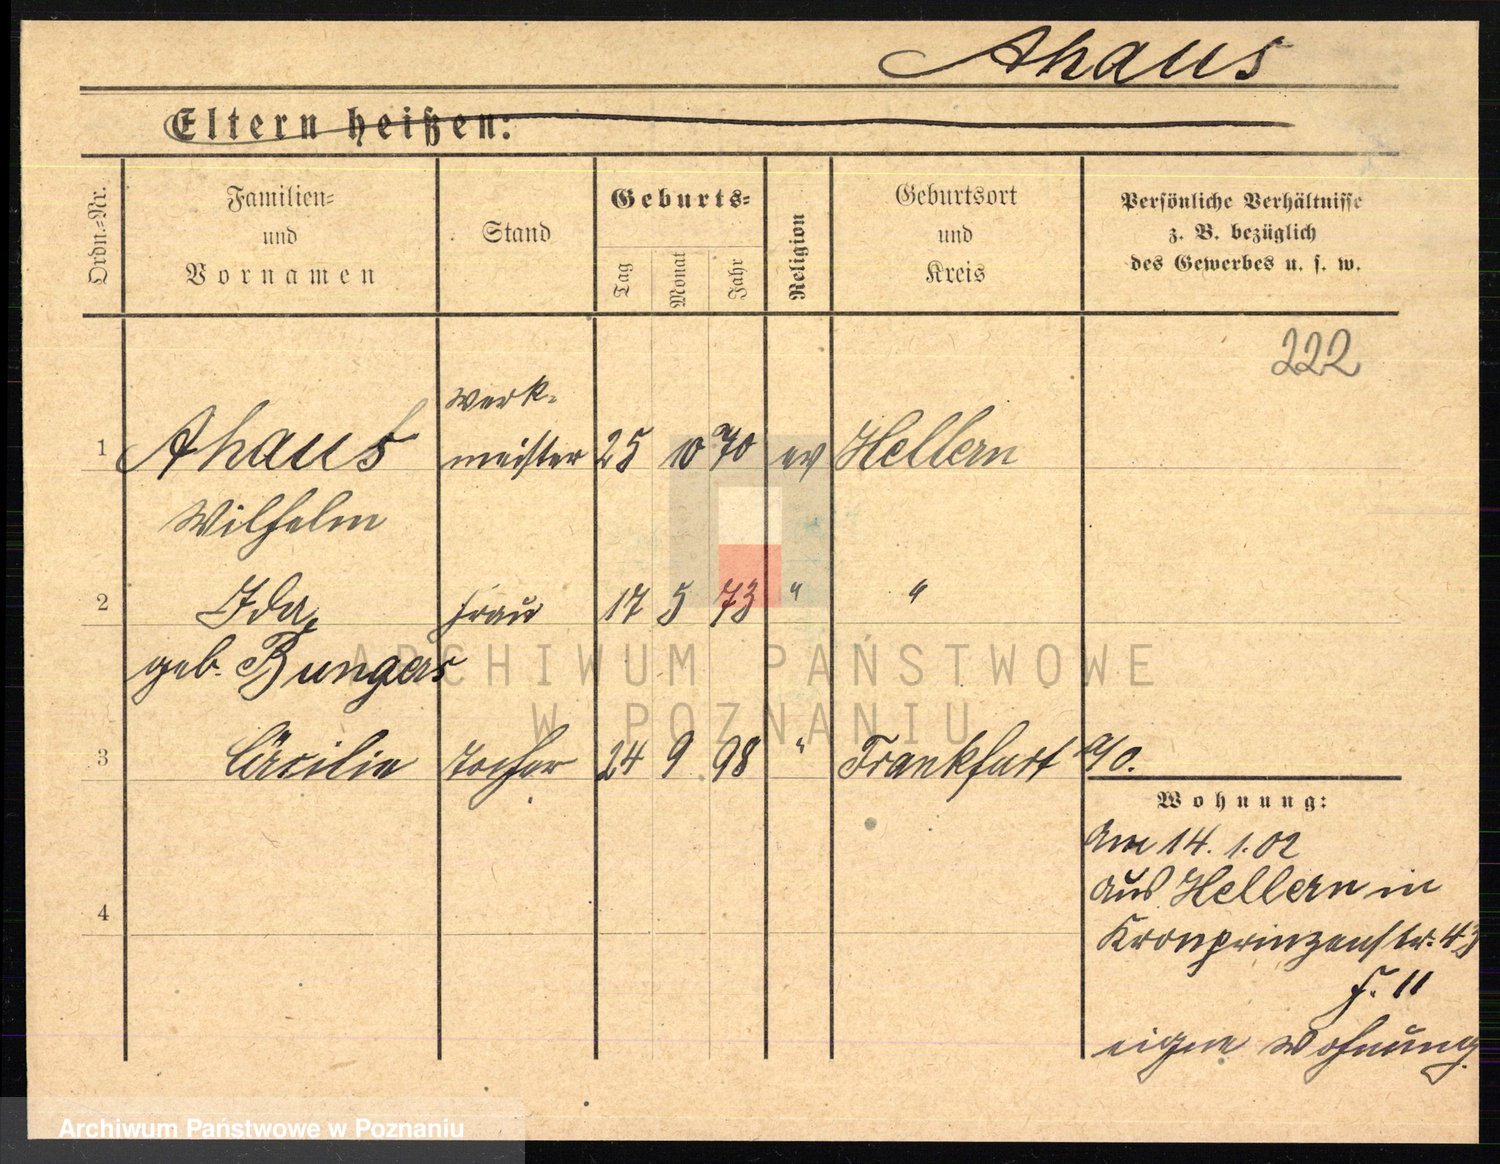 Ahaus
Eltern heißen:
Ordn.=Nr.
Familien=
und
Vornamen
Stand
Geburts=
Tag
Monat
Jahr
Religion
Geburtsort
und
Kreis
Persönliche Verhältnisse
z. B. bezüglich
des Gewerbes u. s. w.
222
Werk-
1 Ahaus meister 25 10 70 ev Hellern
Wilhelm
2 Ida, Frau 17 5 73 " "
geb. Bungers
3 Cäcilie Tochter 24 9 98 " Frankfurt a/O.
Wohnung:
Am 14. 1. 02
aus Hellern in
4
Kronprinzenstr. 43
H. II
eigne Wohnung.
ARCHIWUM PAŃSTWOWE
W POZNANIU
Archiwum Państwowe w Poznaniu